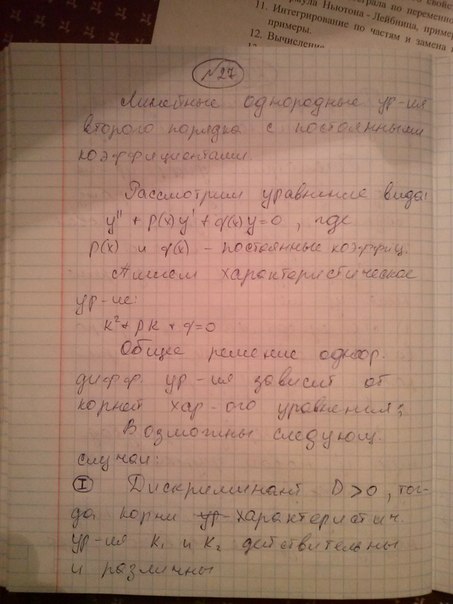 11. Интегрирование по частям и замена
примеры.
12. Вычисление
№27
Линейные однородные ур-ия
второго порядка с постоянными
коэффициентами.
Рассмотрим уравнение вида:
y'' + p(x)y' + q(x)y=0, где
p(x) и q(x) – постоянные коэффиц.
Пишем характеристическое
ур-ие:
k²+pk+q=0
Общее решение однор.
дифф. ур-ия зависит от
корней хар-ого уравнения:
Возможны следующ.
случаи:
I Дискриминант D>0, тог-
да корни характеристич.
ур-ия k₁ и k₂ действительны
и различны